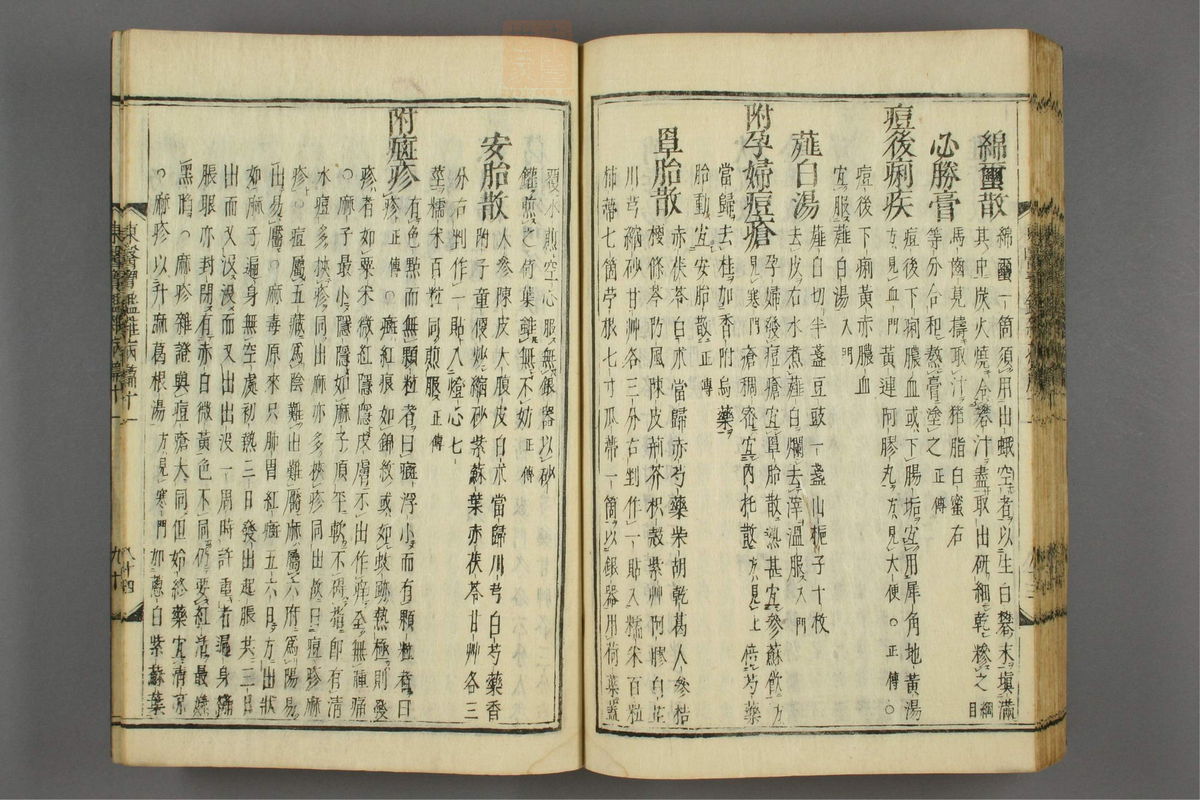 綿繭散 綿繭一箇須用出蛾空者以生白礬末塡滿
其中炭火燒令礬汁盡取出研細乾糝之 綱目
必勝膏 馬齒莧擣取汁猪脂白蜜右
等分合和熬膏塗之 正傳
痘後痢疾 痘後下痢膿血或下腸垢宜用犀角地黃湯
方見血門 黃連阿膠丸 方見大便 ○正傳○
痘後下痢黃赤膿血
宜服薤白湯 入門
薤白湯 薤白切半盞豆豉一盞山梔子十枚
去皮右水煮薤白爛去滓溫服 入門
附孕婦痘瘡 孕婦發痘瘡宜罩胎散熱甚宜參蘇飮 方
見寒門 瘡稠密宜內托散 方見上 倍芍藥
當歸去桂加香附烏藥
胎動宜安胎散 正傳
罩胎散 赤茯苓白朮當歸赤芍藥柴胡乾葛人參桔
梗條芩防風陳皮荊芥枳殼紫草阿膠白芷
川芎縮砂甘艸各三分右剉作一貼入糯米百粒
柿蔕七箇苧根七寸瓜蔕一箇以銀器用荷葉蓋
覆水煎空心服無銀器以砂
鑵煎之荷葉雖無不妨 正傳
安胎散 人參陳皮大腹皮白朮當歸川芎白芍藥香
附子童便炒縮砂紫蘇葉赤茯苓甘艸各三
分右剉作一貼入燈心七
莖糯米百粒同煎服 正傳
附癍疹 有色點而無顆粒者曰癍浮小而有顆粒者曰
疹 正傳 ○癍紅痕如錦紋或如蚊跡熱極則發
疹者如粟米微紅隱隱皮膚不出作痒全無腫痛
○麻子最小隱隱如麻子頂平軟不碍指卽有淸
水痘多挾疹同出麻亦多挾疹同出故曰痘疹麻
疹○痘屬五藏爲陰難出難靨麻屬六府爲陽易
出易靨○麻毒原來只肺胃紅癍五六日方出狀
如麻子遍身無空處初熱三日發出起脹共三日
出而又沒沒而又出出沒一周時許重者遍身繃
脹眼亦封閉有赤白微黃色不同仍要紅活最嫌
黑陷○麻疹雜證與痘瘡大同但始終藥宜淸凉
○麻疹以升麻葛根湯 方見寒門 如蔥白紫蘇葉
東醫寶鑑雜病篇十一
八十四
九十